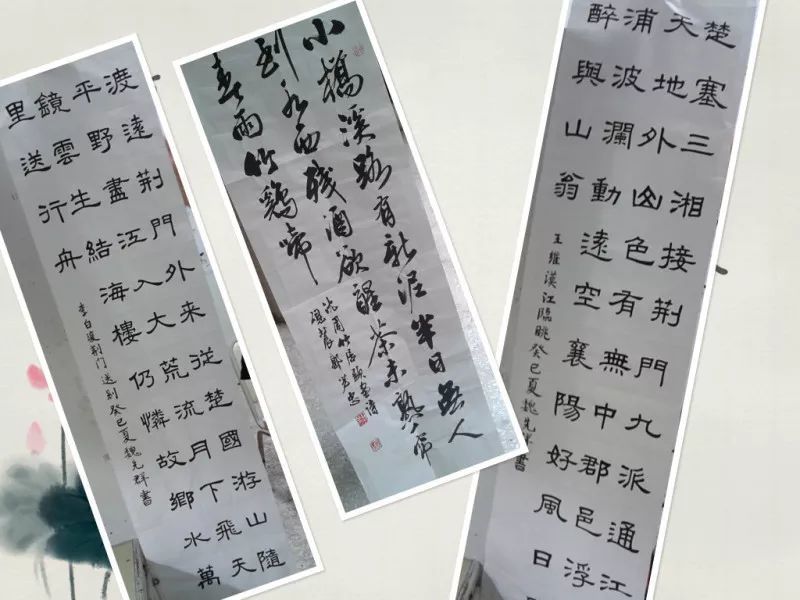 渡遠荆門外来從楚國游山隨
平野盡江入大荒流月下飛天
鏡雲生結海樓仍憐故鄉水萬
里送行舟
李白渡荆门送别癸巳夏魏先群書
小橋溪路有新泥半日無人
到水西殘酒欲醒茶未熟一帘
春雨竹鷄啼
沈周
楚塞三湘接荆門九派通江
天地外山色有無中郡邑浮
浦波瀾動遠空襄陽好風日
醉與山翁
王維漢江臨眺癸巳夏魏先群書